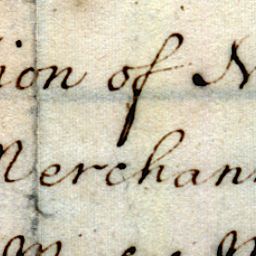 ion of N
Merchan